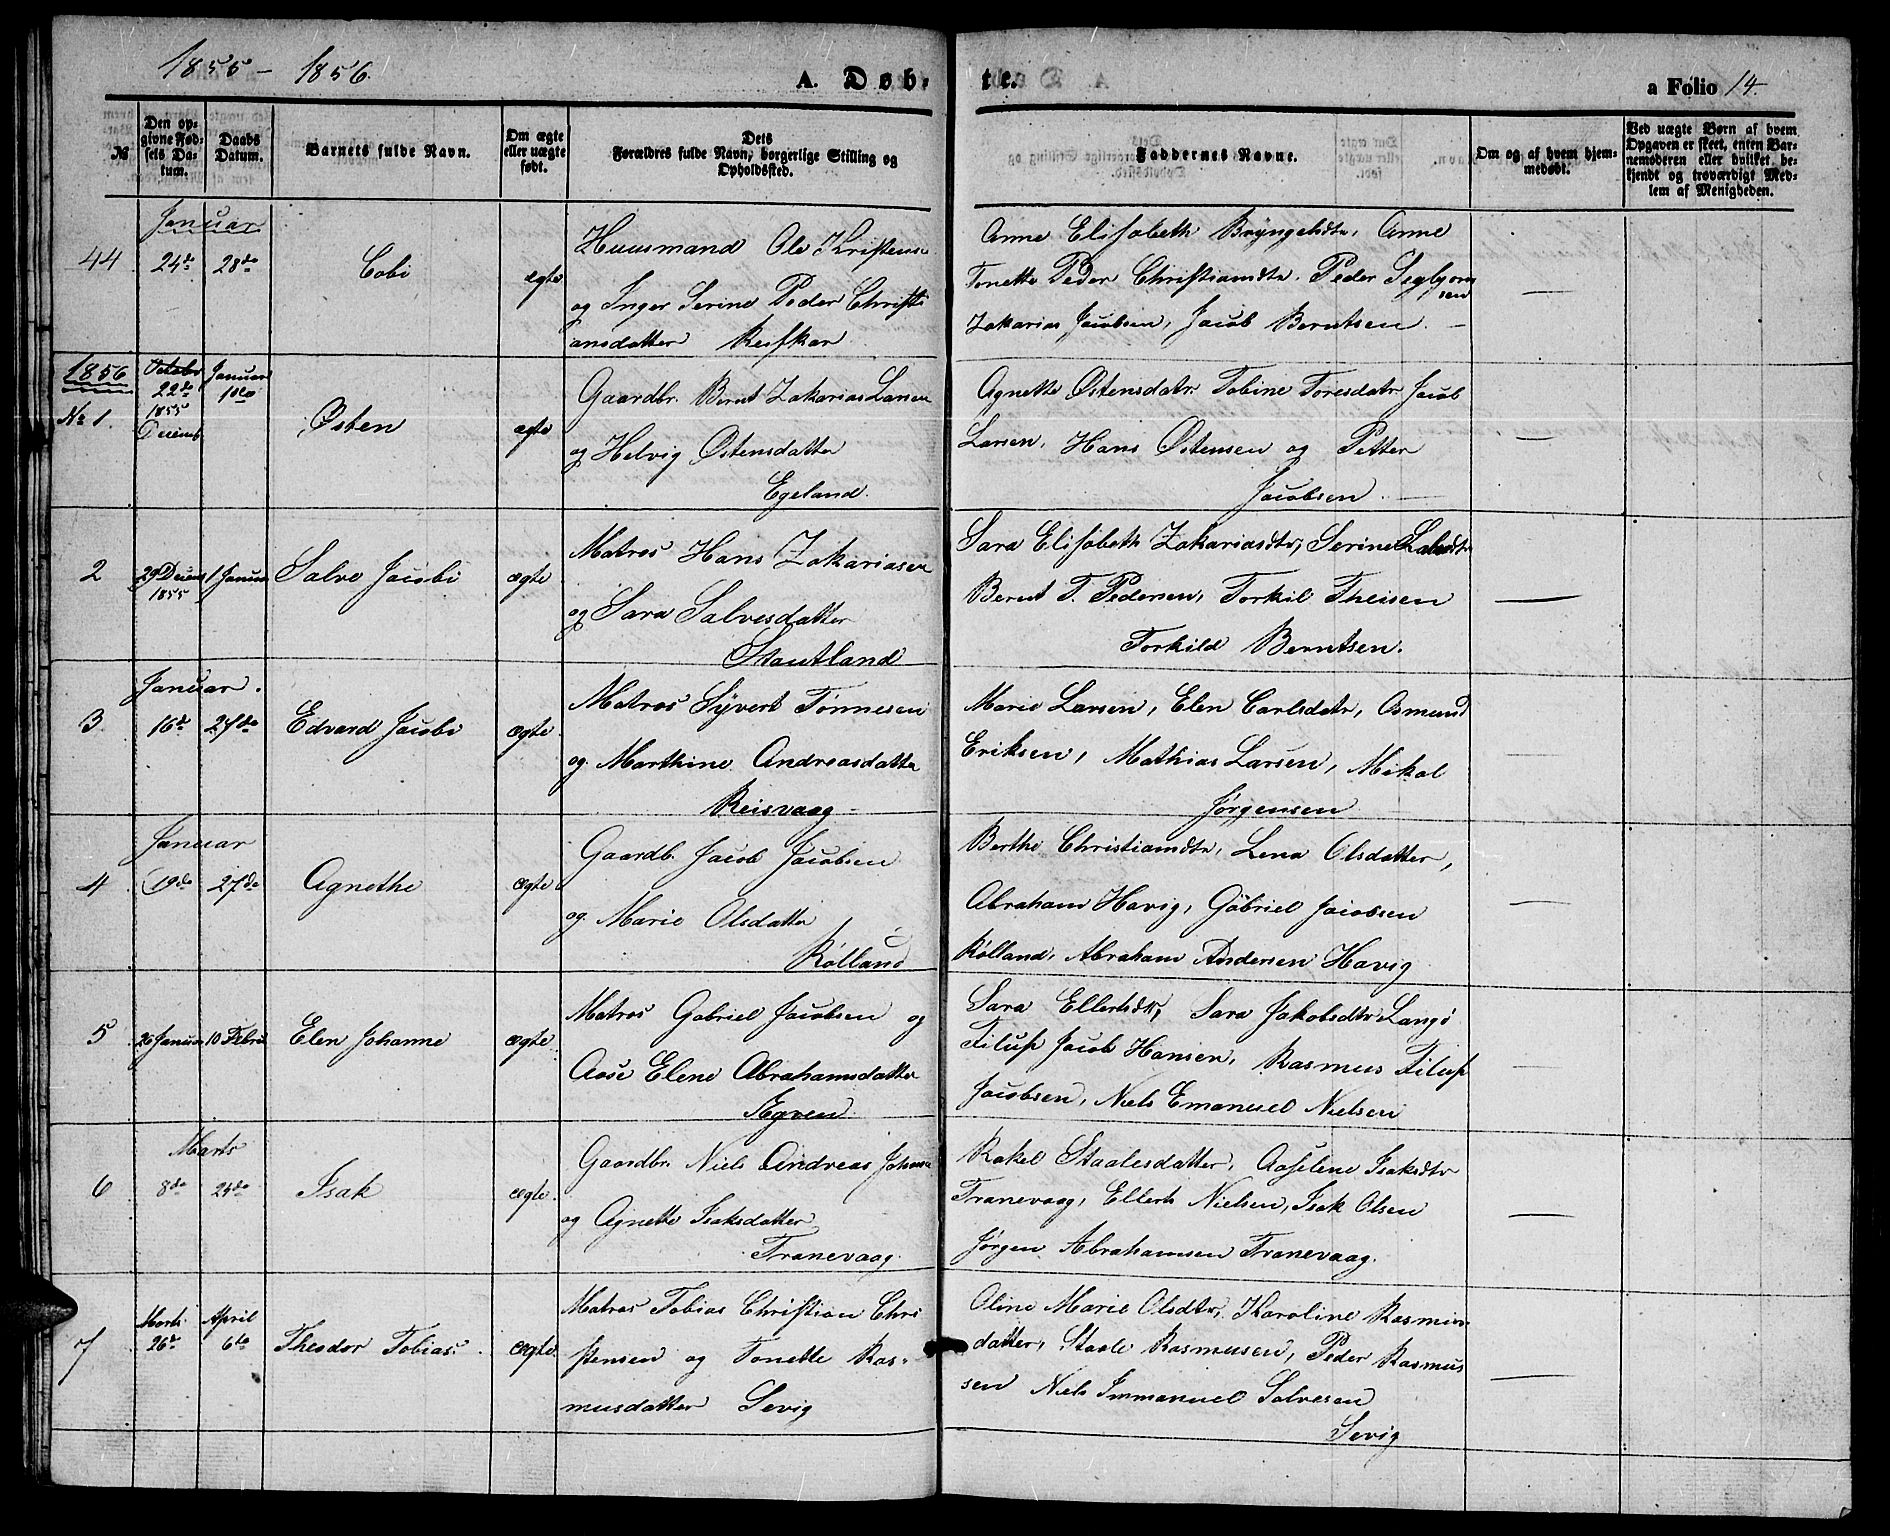 1855 - 1856.
A. Døb-
te.
a Folio 14.
№
Den op-
givne Fød-
sels Da-
tum.
Daabs
Datum.
Barnets fulde Navn.
Om ægte
eller uægte
født.
Dets
Forældres fulde Navn, borgerlige Stilling og
Opholdssted.
Faddernes Navne.
Om og af hvem hjem-
medøbt.
Ved uægte Børn af hvem
Opgaven er skeet, enten Bar-
nemoderen eller hvilket be-
kjendt og troværdigt Med-
lem af Menigheden.
Januar
44 24de 28de Cobi ægte
Huusmand Ole Kristens
og Inger Serine Peder Christi
ansdatter
Anne Elisabeth Bryngelsdtr, Anne
Tonette Peder Christiansdtr. Peder
Zakarias Jacobsen, Jacob Berntsen. —
1856
No 1.
22de
1855
Januar
Østen ægte
Gaardbr. Bernt Zakarias Larsen
og Helvig Østensdatter
Egeland.
Agnette Østensdatr. Tobine Toresdatr. Jacob
Larsen, Hans Østensen og Petter
Jacobsen. —
2 29 Decem 1 Januar Salve Jacobi ægte
1855
Matros Hans Zakariasen
og Sara Salvesdatter
Stautland
Sara Elisabeth Zakariasdtr, Serine
Bernt T. Pedersen, Torkil Theisen
Torkild Berntsen.
Januar.
3. 16de 27de Edvard Jacobi ægte
Matros Syvert Tønnesen
og Marthine Andreasdatter
Reisvaag —
Marie Larsen, Elen Carlsdatr, Osmund
Eriksen, Mathias Larsen, Mikal
Jørgensen
Januar
4 19de 27de Agnethe ægte
Gaardb. Jacob Jacobsen
og Marie Olsdatter
Rølland
Berthe Christiansdtr, Lena Olsdatter,
Abraham Havig, Gabriel Jacobsen
Rølland, Abraham Andersen Havig
5 26 Januar 10 Febru Elen Johanne ægte
Matros Gabriel Jacobsen og
Aase Elene Abrahamsdatter
Egven
Sara Ellertsdtr, Sara Jakobsdtr Langø
Filup Jacob Hansen, Rasmus Filup
Jacobsen, Niels Emanuel Nielsen
Marts
6 8de 24de Isak ægte
Gaardbr. Niels Andreas
og Agnette Isaksdatter
Tranevaag.
Rakel Staalesdatter, Aaselene Isaksdtr
Tranevaag, Ellert Nielsen, Isak Olsen
Jørgen Abrahamsen Tranevaag.
Marts April
7 26de 6te Theodor Tobias. ægte
Matros Tobias Christian Chri
stensen og Tonette Ras-
musdatter Sevig
Oline Marie Olsdtr, Karoline Rasmus-
datter, Staale Rasmusen, Peder Rasmus
sen Niels Immanuel Salvesen
Sevig